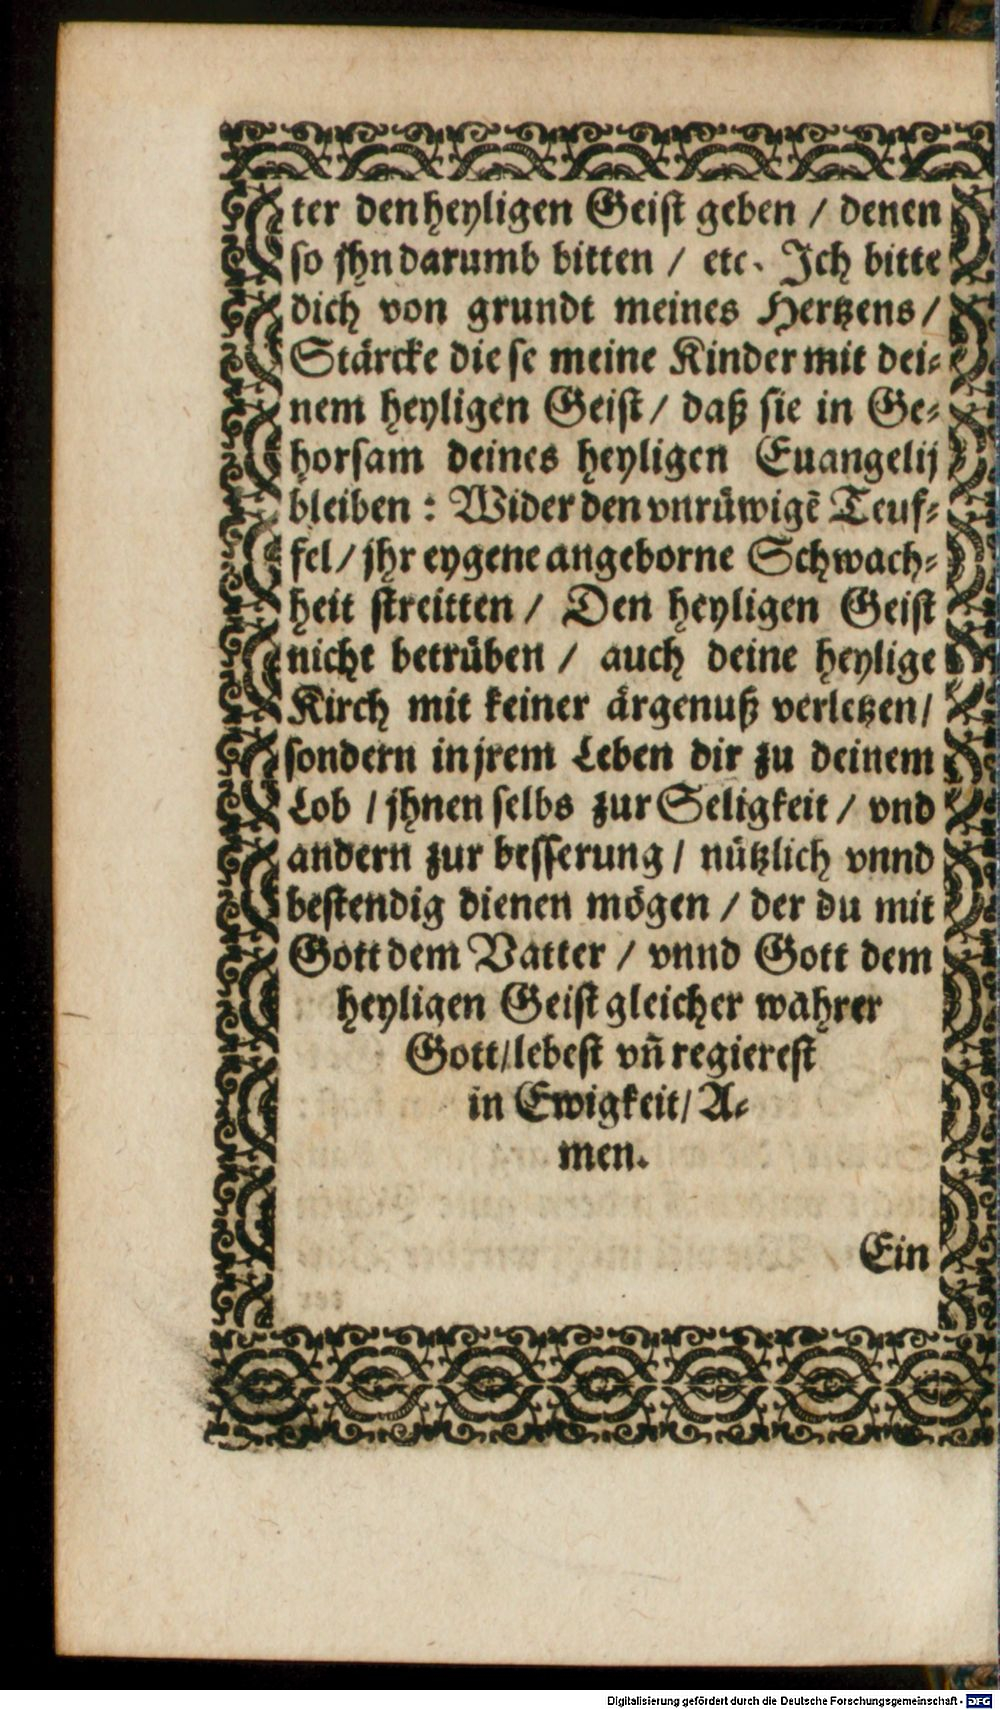 ter den heyligen Geist geben / denen
so jhn darumb bitten / etc. Jch bitte
dich von grundt meines Hertzens /
Stärcke diese meine Kinder mit dei⸗
nem heyligen Geist / daß sie in Ge⸗
horsam deines heyligen Euangelij
bleiben : Wider den vnrüwigẽ Teuf⸗
fel / jhr eygene angeborne Schwach⸗
heit streitten / Den heyligen Geist
nicht betrüben / auch deine heylige
Kirch mit keiner ärgenuß verletzen /
sondern in jrem Leben dir zu deinem
Lob / jhnen selbs zur Seligkeit / vnd
andern zur besserung / nützlich vnnd
bestendig dienen mögen / der du mit
Gott dem Vatter / vnnd Gott dem
heyligen Geist gleicher wahrer
Gott / lebest vñ regierest
in Ewigkeit / A⸗
men.
Ein
Digitalisierung gefördert durch die Deutsche Forschungsgemeinschaft - DFG